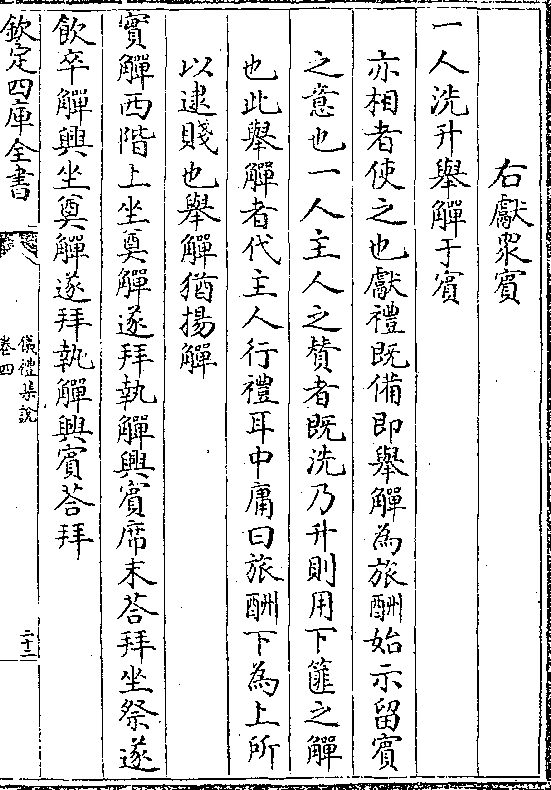 右獻衆賔
一人洗升舉觶于賔
亦相者使之也獻禮既備即舉觶為旅酬始示留賔
之意也一人主人之賛者既洗乃升則用下篚之觶
也此舉觶者代主人行禮耳中庸曰旅酬下為上所
以逮賤也舉觶猶揚觶
實觶西階上坐奠觶遂拜執觶興賔席末荅拜坐祭遂
飲卒觶興坐奠觶遂拜執觶興賔荅拜
欽定四庫全書
儀禮集說
卷四
二十二